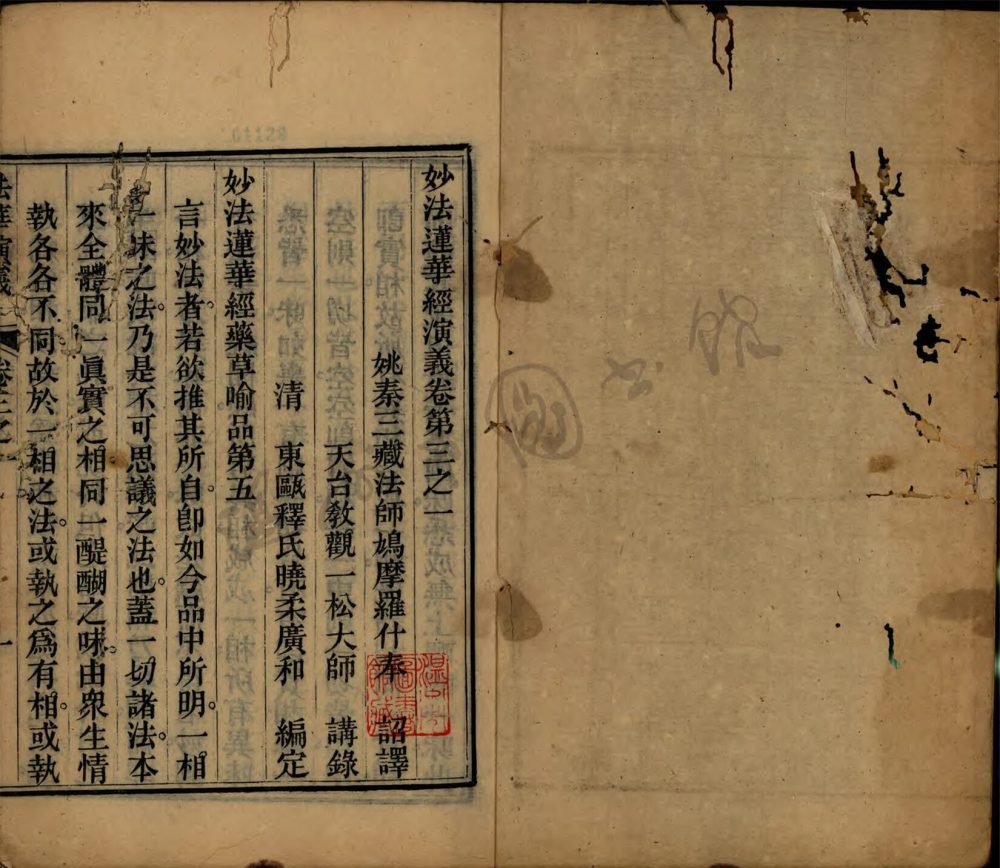 妙法蓮華經演義卷第三之一
姚秦三藏法師鳩摩羅什奉　詔譯
天台教觀一松大師　講錄
清　東甌釋氏曉柔廣和　編定
妙法蓮華經藥草喻品第五
言妙法者若欲推其所自。卽如今品中所明。一相
一味之法。乃是不可思議之法也。蓋一切諸法。本
來全體同一眞實之相。同一醍醐之味。由衆生情
執各各不同。故於一相之法。或執之爲有相。或執
法華演義
卷三之一
一
圖書館
01128